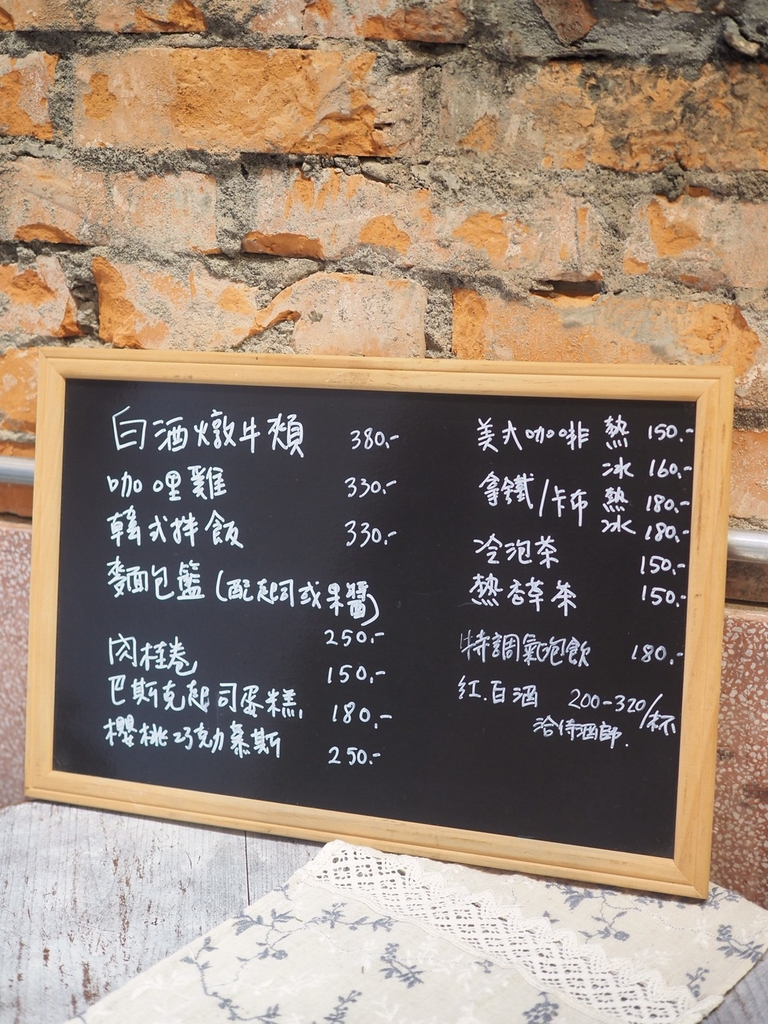 白酒燉牛頰 380.-
咖哩雞 330.-
韓式拌飯 330.-
麵包籃(配起司或果醬)
250.-
肉桂卷 150.-
巴斯克起司蛋糕 180.-
櫻桃巧克力慕斯 250.-
美式咖啡 熱 150.-
冰 160.-
拿鐵/卡布 熱 180.-
冰 180.-
冷泡茶 150.-
熱香草茶 150.-
特調氣泡飲 180.-
紅.白酒 200-320/杯
洽侍酒師.